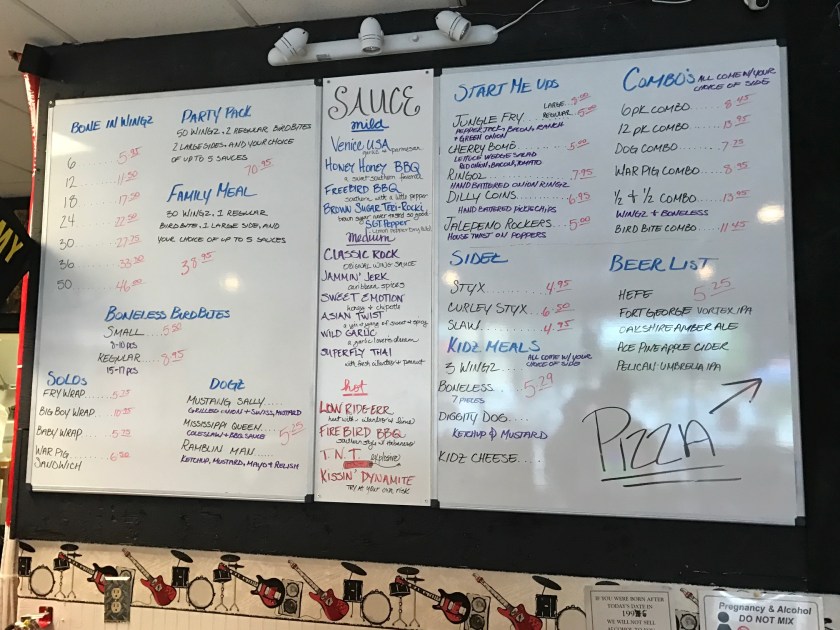 BONE IN WINGZ
6 5.95
12 11.50
18 17.50
24 22.50
30 27.75
36 33.50
50 46.00
PARTY PACK
50 WINGZ, 2 REGULAR BIRDBITES
2 LARGE SIDES, AND YOUR CHOICE
OF UP TO 5 SAUCES
70.95
FAMILY MEAL
30 WINGZ, 1 REGULAR
BIRDBITE, 1 LARGE SIDE, AND
YOUR CHOICE OF UP TO 5 SAUCES
38.95
BONELESS BIRDBITES
SMALL 5.50
REGULAR 8.95
15-17 PCS
SOLOS
FRY WRAP
BIG BOY WRAP
BABY WRAP
WAR PIG
SANDWICH
DOGZ
MUSTANG SALLY
GRILLED ONION & SWISS, MUSTARD
MISSISSIPPI QUEEN
COLESLAW & BBQ SAUCE
5.25
RAMBLIN MAN
KETCHUP, MUSTARD, MAYO & RELISH
SAUCE
mild
VENICE USA
garlic & parmesan
HONEY HONEY BBQ
a sweet southern favorite
FREEBIRD BBQ
southern with a little pepper
BROWN SUGAR
SGT PEPPER
medium
CLASSIC ROCK
ORIGINAL WING SAUCE
JAMMIN' JERK
caribbean spices
SWEET EMOTION
honey & chipotle
ASIAN TWIST
WILD GARLIC
SUPERFLY THAI
hot
LOW RIDE-ERR
FIREBIRD BBQ
T.N.T. explosive
KISSIN' DYNAMITE
Try at your own risk
START ME UPS
JUNGLE FRY LARGE
REGULAR
PEPPER JACK, BACON, RANCH
& GREEN ONION
CHERRY BOMB 5.00
LETTUCE WEDGE SALAD
RED ONION, BACON, TOMATO
RINGOZ 7.95
HAND BATTERED ONION RINGZ
DILLY COINS 6.95
HAND BATTERED PICKLE CHIPS
JALEPENO ROCKERS 5.00
HOUSE TWIST ON POPPERS
SIDEZ
STYX 4.95
CURLEY STYX 6.50
SLAW 4.95
KIDZ MEALS
ALL COME W/YOUR
CHOICE OF SIDE
3 WINGZ
BONELESS 5.29
7 PIECES
DIGGITY DOG
KETCHUP & MUSTARD
KIDZ CHEESE
COMBO'S ALL COME W/YOUR
CHOICE OF SIDE
6 PK COMBO 8.45
12 PK COMBO 13.95
DOG COMBO 7.25
WAR PIG COMBO 8.95
½ + ½ COMBO 13.95
WINGZ & BONELESS
BIRD BITE COMBO 11.45
BEER LIST
5.25
HEFE
FORT GEORGE VORTEX IPA
OAKSHIRE AMBER ALE
ACE PINEAPPLE CIDER
PELICAN UMBRELLA IPA
PIZZA
MY
IF YOU WERE BORN AFTER
TODAY'S DATE IN
WE WILL NOT SELL
Pregnancy & Alcohol
DO NOT MIX